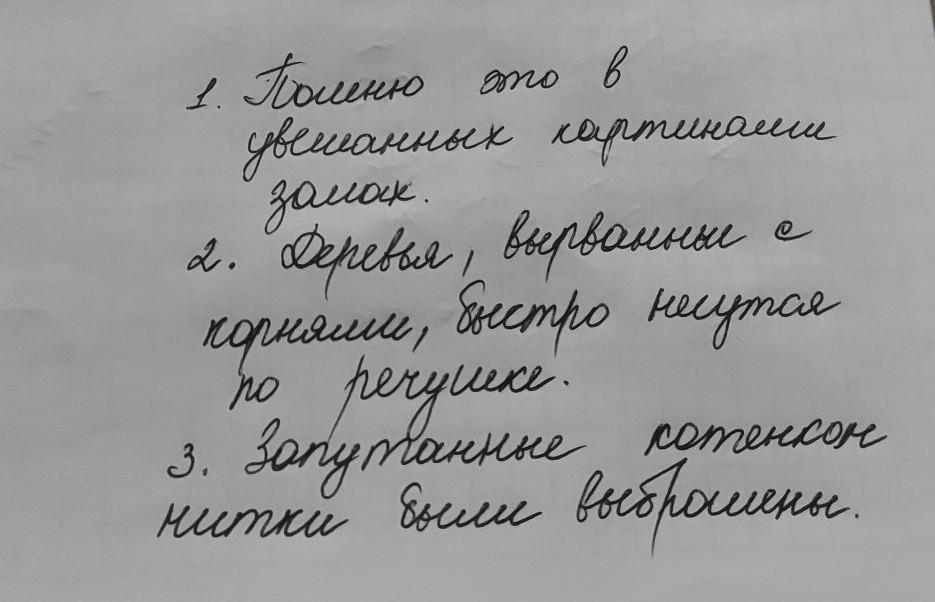 1. Помню это в
увешанных картинами
залах.
2. Деревья, вырванные с
корнями, быстро несутся
по речушке.
3. Запутанные котенком
нитки были выброшены.